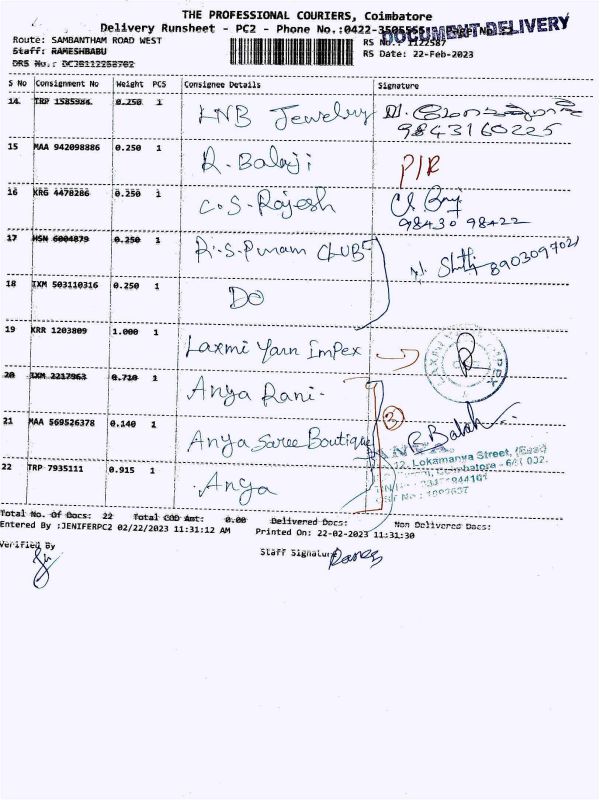 THE PROFESSIONAL COURIERS, Coimbatore
Delivery Runsheet - PC2 - Phone No.:0422-3505555
DOCUMENT DELIVERY
Route: SAMBANTHAM ROAD WEST
RS No.: 1122587
Staff: RAMESHBABU
RS Date: 22-Feb-2023
DRS No.:
S No Consignment No Weight PCS Consignee Details Signature
14 TRP 1585984 0.250 1 KNB Jewelry
9843160225
15 MAA 942098886 0.250 1 R. Balaji P/R
16 KRG 4478286 0.250 1 C.S. Rajesh
98430 98422
17 HSN 6004879 0.250 1 R.S. Puram CLUB
8903097021
18 IXM 503110316 0.250 1 DO
19 KRR 1203809 1.000 1 Laxmi Yarn Impex
20 IXM 2217963 0.710 1 Anya Rani
3
21 MAA 569526378 0.140 1 Anya Saree Boutique
12, Lokamanya Street,
Coimbatore - 641 002.
22 TRP 7935111 0.915 1 Anya
Total No. Of Docs: 22 Total COD Amt: 0.00 Delivered Docs: Non Delivered Docs:
Entered By :JENIFERPC2 02/22/2023 11:31:12 AM Printed On: 22-02-2023 11:31:30
Verified By
Staff Signature